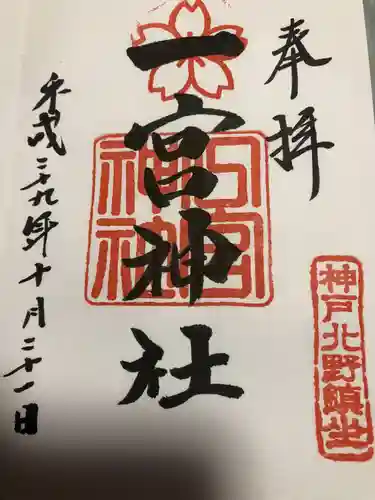 奉拝
神戸北野鎮坐
一宮神社
一宮神社
平成二十九年十月二十一日